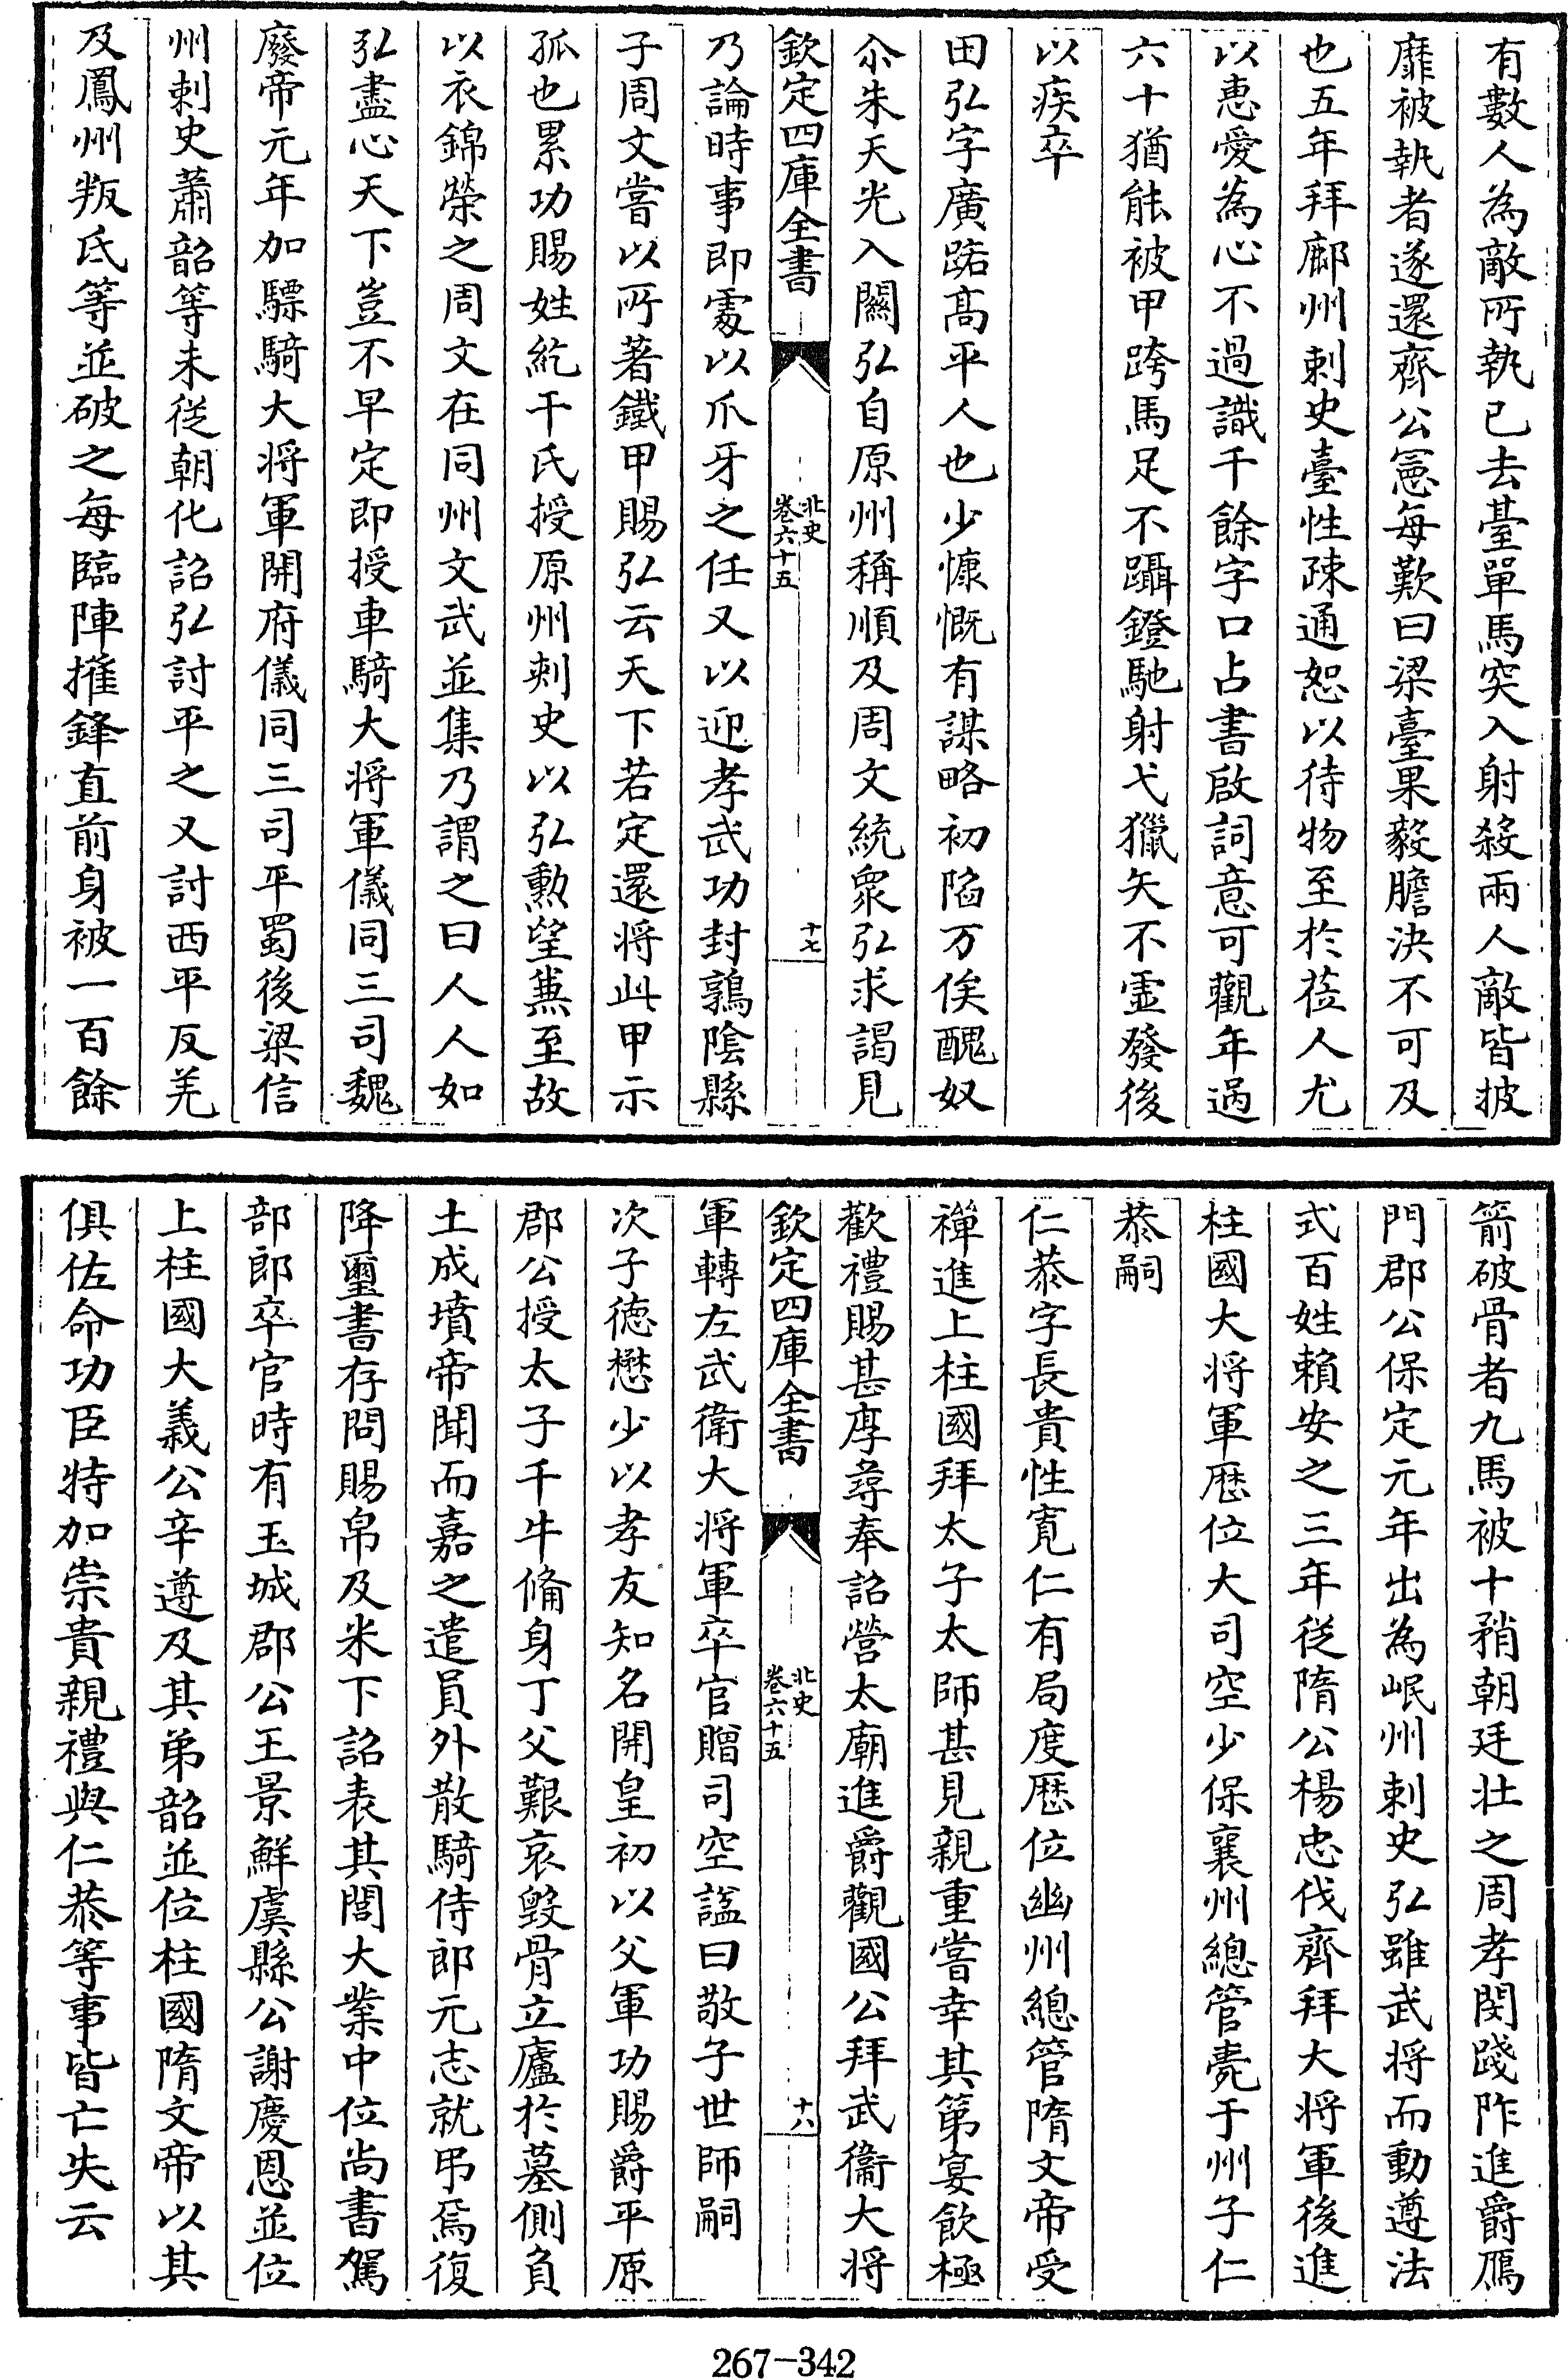 有數人為敵所執已去臺單馬突入射殺兩人敵皆披
靡被執者遂還齊公憲每歎曰梁臺果毅膽決不可及
也五年拜鄜州刺史臺性疎通恕以待物至於莅人尤
以惠愛為心不過識千餘字口占書啟詞意可觀年過
六十猶能被甲跨馬足不躡鐙馳射弋獵矢不虛發後
以疾卒
田弘字廣踎高平人也少慷慨有謀略初陷万俟醜奴
尒朱天光入關弘自原州稱順及周文統衆弘求謁見
欽定四庫全書
北史
卷六十五
十七
乃論時事即處以爪牙之任又以迎孝武功封鶉陰縣
子周文嘗以所著鐵甲賜弘云天下若定還将此甲示
孤也累功賜姓紇干氏授原州刺史以弘勲望兼至故
以衣錦榮之周文在同州文武並集乃謂之曰人人如
弘盡心天下豈不早定即授車騎大将軍儀同三司魏
廢帝元年加驃騎大将軍開府儀同三司平蜀後梁信
州刺史蕭韶等未從朝化詔弘討平之又討西平反羌
及鳳州叛氐等並破之每臨陣摧鋒直前身被一百餘
箭破骨者九馬被十矟朝廷壯之周孝閔踐阼進爵鴈
門郡公保定元年出為岷州刺史弘雖武将而動遵法
式百姓賴安之三年從隋公楊忠伐齊拜大将軍後進
柱國大将軍歴位大司空少保襄州總管薨于州子仁
恭嗣
仁恭字長貴性寛仁有局度歴位幽州總管隋文帝受
禪進上柱國拜太子太師甚見親重嘗幸其第宴飲極
歡禮賜甚厚尋奉詔營太廟進爵觀國公拜武衞大将
欽定四庫全書
北史
卷六十五
十八
軍轉左武衛大将軍卒官贈司空諡曰敬子世師嗣
次子徳懋少以孝友知名開皇初以父軍功賜爵平原
郡公授太子千牛備身丁父艱哀毀骨立廬於墓側負
土成墳帝聞而嘉之遣員外散騎侍郎元志就弔焉復
降璽書存問賜帛及米下詔表其閭大業中位尚書駕
部郎卒官時有玉城郡公王景鮮虞縣公謝慶恩並位
上柱國大義公辛遵及其弟韶並位柱國隋文帝以其
俱佐命功臣特加崇貴親禮與仁恭等事皆亡失云
267-342